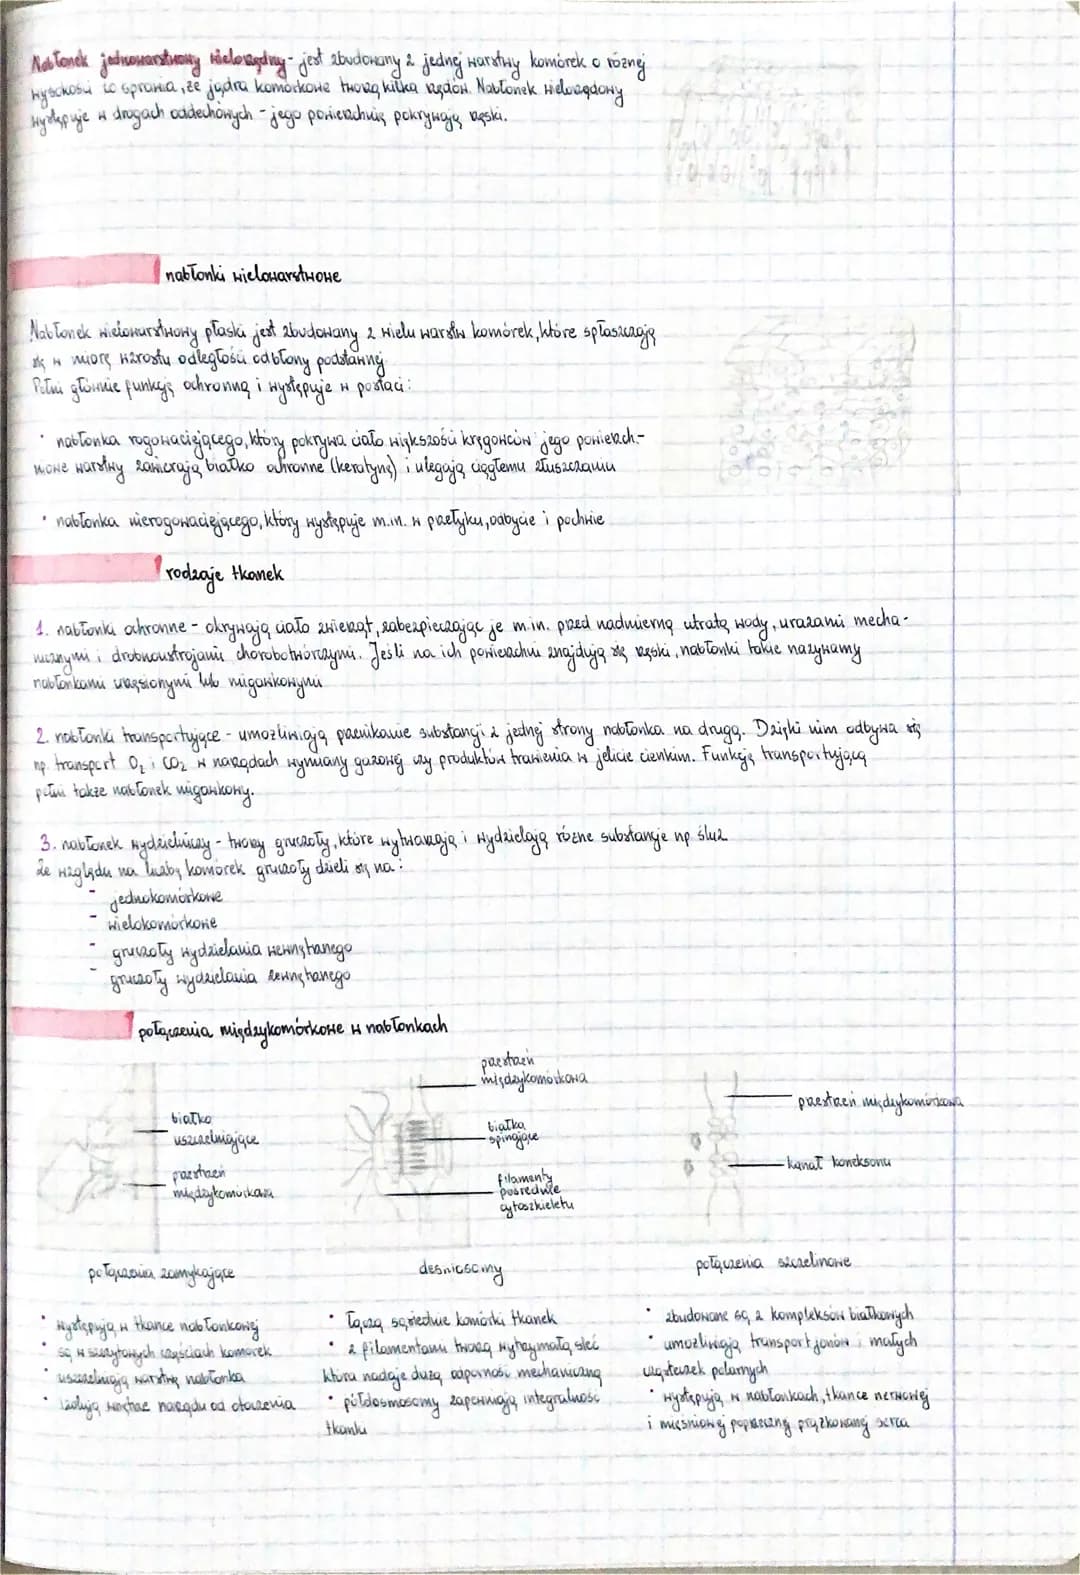 Nabłonek jednowarstwowy wielorzędny - jest zbudowany z jednej warstwy komórek o różnej
wysokości co sprawia, że jądra komórkowe tworzą kilka rzędów. Nabłonek wielorzędowy
występuje w drogach oddechowych - jego powierzchnię pokrywają rzęski.
nabłonki wielowarstwowe
Nabłonek wielowarstwowy płaski jest zbudowany z wielu warstw komórek, które spłaszczają
się w miarę wzrostu odległości od błony podstawnej.
Pełni głównie funkcję ochronną i występuje w postaci:
• nabłonka rogowaciejącego, który pokrywa ciało większości kręgowców jego powierzch-
niowe warstwy zawierają białko ochronne (keratynę) i ulegają ciągłemu złuszczaniu
• nabłonka nierogowaciejącego, który występuje m.in. w przełyku, odbycie i pochwie
rodzaje tkanek
1. nabłonki ochronne - okrywają ciało zwierząt, zabezpieczając je m.in. przed nadmierną utratą wody, urazami mecha-
nicznymi i drobnoustrojami chorobotwórczymi. Jeśli na ich powierzchni znajdują się rzęski, nabłonki takie nazywamy
nabłonkami urzęsionymi lub migawkowymi
2. nabłonki transportujące - umożliwiają przenikanie substancji z jednej strony nabłonka na drugą. Dzięki nim odbywa się
np. transport O₂ i CO₂ w narządach wymiany gazowej czy produktów trawienia w jelicie cienkim. Funkcję transportującą
pełni także nabłonek migawkowy.
3. nabłonek wydzielniczy - tworzy gruczoły, które wytwarzają i wydzielają różne substancje np. śluz
Ze względu na liczbę komórek gruczoły dzieli się na:
- jednokomórkowe
- wielokomórkowe
- gruczoły wydzielania wewnętrznego
- gruczoły wydzielania zewnętrznego
połączenia międzykomórkowe w nabłonkach
białko
uszczelniające
przestrzeń
międzykomórkowa
przestrzeń
międzykomórkowa
białka
spinające
filamenty
pośrednie
cytoszkieletu
przestrzeń międzykomórkowa
kanał koneksonu
połączenia zamykające
• występują w tkance nabłonkowej
• są w szczytowych częściach komórek
• uszczelniają warstwę nabłonka
• izolują wnętrze narządu od otoczenia
desmosomy
• łączą sąsiednie komórki tkanek
• z filamentami tworzą wytrzymałą sieć
która nadaje dużą odporność mechaniczną
• półdesmosomy zapewniają integralność
tkanki
połączenia szczelinowe
• zbudowane są z kompleksów białkowych
• umożliwiają transport jonów i małych
cząsteczek polarnych
• występują w nabłonkach, tkance nerwowej
i mięśniowej poprzecznej prążkowanej serca